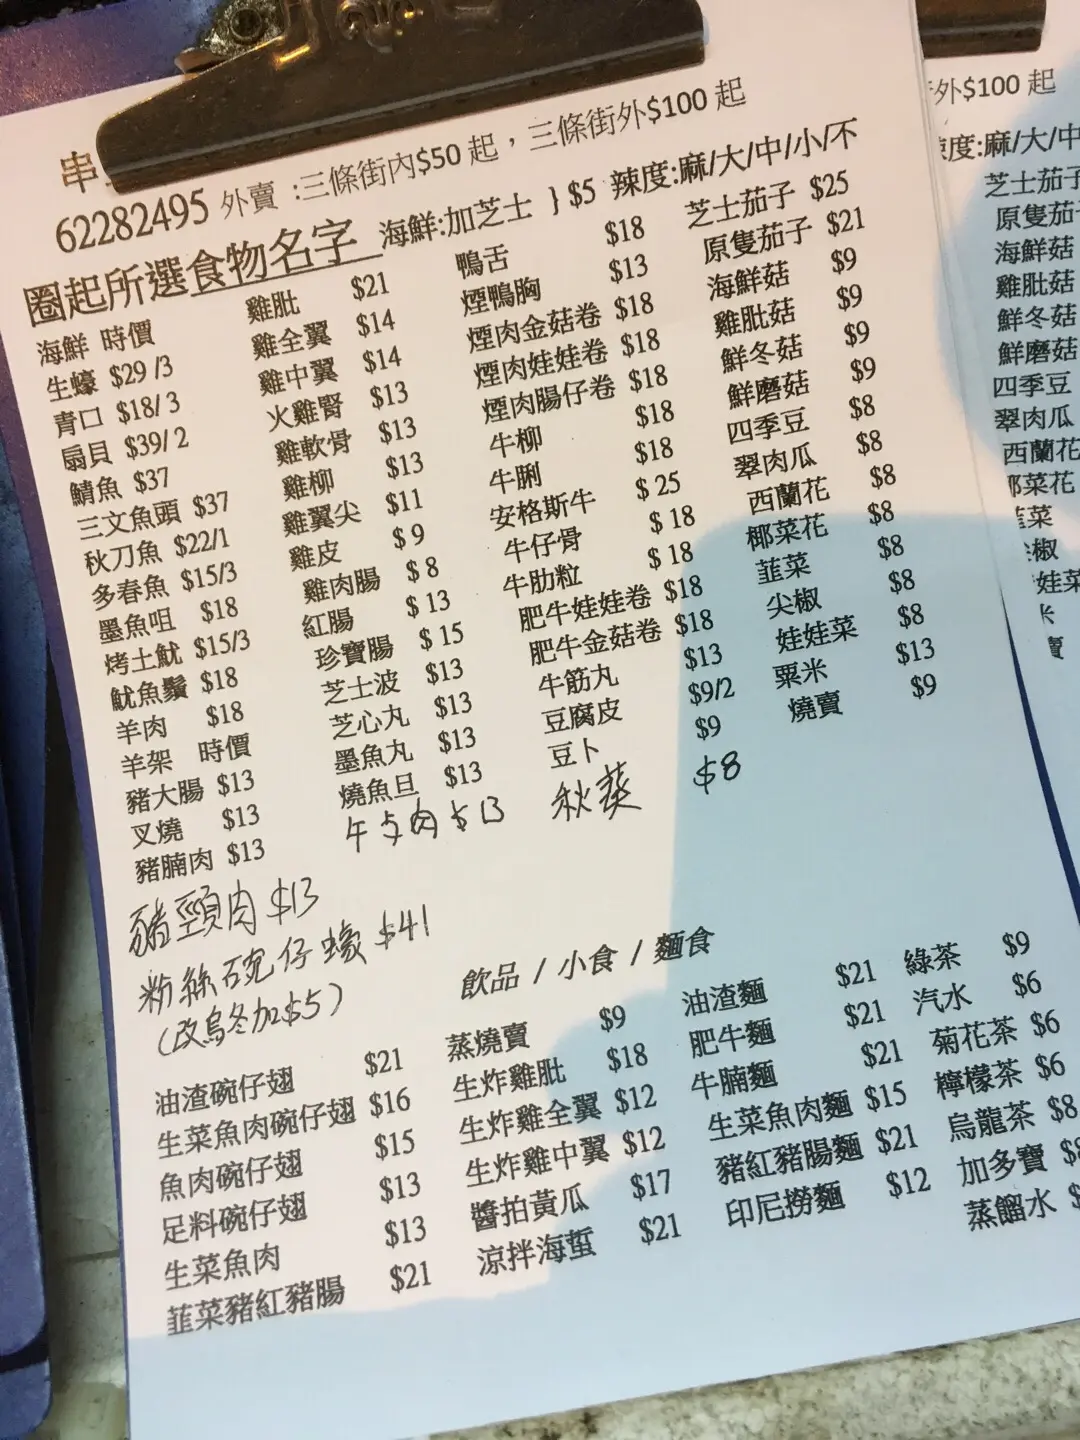 串
62282495 外賣 :三條街內$50 起，三條街外$100 起
圈起所選食物名字 海鮮:加芝士 } $5 辣度:麻/大/中/小/不
海鮮 時價
生蠔 $29 /3
青口 $18/ 3
扇貝 $39/ 2
鯖魚 $37
三文魚頭 $37
秋刀魚 $22/1
多春魚 $15/3
墨魚咀 $18
烤土魷 $15/3
魷魚鬚 $18
羊肉 $18
羊架 時價
豬大腸 $13
叉燒 $13
豬腩肉 $13
豬頸肉 $13
粉絲碗仔蠔 $41
(改烏冬加$5)
雞肶 $21
雞全翼 $14
雞中翼 $14
火雞腎 $13
雞軟骨 $13
雞柳 $13
雞翼尖 $11
雞皮 $ 9
雞肉腸 $ 8
紅腸 $ 13
珍寶腸 $ 15
芝士波 $13
芝心丸 $13
墨魚丸 $13
燒魚旦 $13
肉 $13
鴨舌 $18
煙鴨胸 $13
煙肉金菇卷 $18
煙肉娃娃卷 $18
煙肉腸仔卷 $18
牛柳 $18
牛脷 $18
安格斯牛 $ 25
牛仔骨 $ 18
牛肋粒 $ 18
肥牛娃娃卷 $18
肥牛金菇卷 $18
牛筋丸 $13
豆腐皮 $9/2
豆卜 $9
秋葵 $8
芝士茄子 $25
原隻茄子 $21
海鮮菇 $9
雞肶菇 $9
鮮冬菇 $9
鮮磨菇 $9
四季豆 $8
翠肉瓜 $8
西蘭花 $8
椰菜花 $8
韮菜 $8
尖椒 $8
娃娃菜 $8
粟米 $13
燒賣 $9
飲品 / 小食 / 麵食
油渣碗仔翅 $21
生菜魚肉碗仔翅 $16
魚肉碗仔翅 $15
足料碗仔翅 $13
生菜魚肉 $13
韮菜豬紅豬腸 $21
蒸燒賣 $9
生炸雞肶 $18
生炸雞全翼 $12
生炸雞中翼 $12
醬拍黃瓜 $17
涼拌海蜇 $21
油渣麵 $21
肥牛麵 $21
牛腩麵 $21
生菜魚肉麵 $15
豬紅豬腸麵 $21
印尼撈麵 $12
綠茶 $9
汽水 $6
菊花茶 $6
檸檬茶 $6
烏龍茶 $8
加多寶 $8
蒸餾水 $
外$100 起
度:麻/大/中
芝士茄子
原隻茄子
海鮮菇
雞肶菇
鮮冬菇
鮮磨菇
四季豆
翠肉瓜
西蘭花
椰菜花
韮菜
尖椒
娃娃菜
米
賣